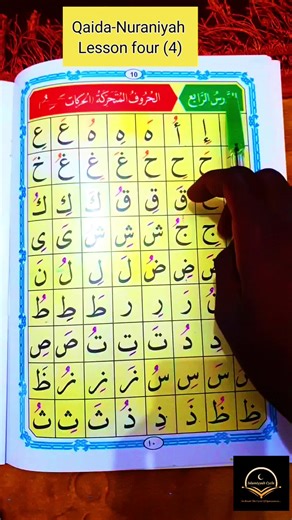 Qaida-Nuraniyah
Lesson four (4)
10
الدَّرْسُ الرَّابِعُ
الحُرُوفُ المُتَحَرِّكَةُ (الحَرَكَاتُ ـَ ـِ ـُ)
إِ أُ هَ هِ هُ عَ عِ
حَ حِ حُ غَ غِ غُ خَ
قَ قِ قُ كَ كِ كُ
جِ جُ شَ شِ شُ يَ يِ
ضَ ضِ ضُ لَ لِ لُ نَ
رَ رِ رُ طَ طِ طُ
دِ دُ تَ تِ تُ صَ صِ
سَ سِ سُ زَ زِ زُ ظَ
ظِ ظُ ذَ ذِ ذُ ثَ ثِ ثُ
١٠